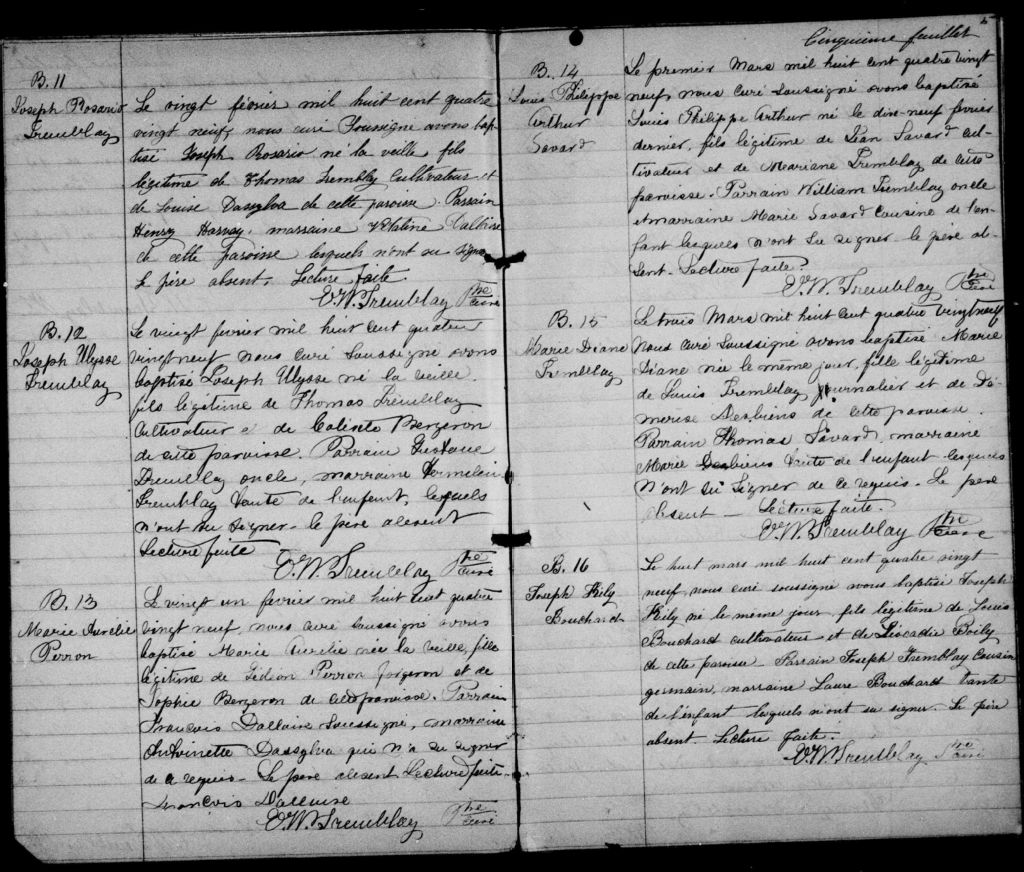 B. 11
Joseph Rosario
Tremblay
Le vingt février mil huit cent quatre
vingt neuf, nous curé soussigné avons bap-
tisé Joseph Rosario né la veille fils
légitime de Thomas Trembly Cultivateur et
de Louise Dassylva de cette paroisse. Parrain
Henry Harvay, marraine
de cette paroisse lesquels n'ont su signer
le père absent. Lecture faite
E. W. Tremblay Ptre Curé
B. 12
Joseph Ulysse
Tremblay
Le vingt fevrier mil huit cent quatre
vingt neuf nous curé soussigné avons
baptisé Joseph Ulysse né la veille
fils légitime de Thomas Tremblay
Cultivateur et de Calixte Bergeron
de cette paroisse. Parrain Gustave
Tremblay oncle, marraine
Tremblay tante de l'enfant, lesquels
n'ont su signer - le père absent
Lecture faite
E. W. Tremblay Ptre Curé
B. 13
Marie Aurelie
Perron
Le vingt un fevrier mil huit cent quatre
vingt neuf, nous curé soussigné avons
baptisé Marie Aurelie née la veille, fille
légitime de Gédéon Perron forgeron et de
Sophie Bergeron de cette paroisse. Parrain
François Dallaire soussigné, marraine
Antoinette Dassylva qui n'a su signer
de ce requis - Le père absent Lecture faite.
François Dallaire
E. W. Tremblay Ptre Curé
5
Cinquième feuillet
B. 14
Louis Philippe
Arthur
Savard
Le premier Mars mil huit cent quatre vingt
neuf, nous curé soussigné avons baptisé
Louis Philippe Arthur né le dix-neuf fevrier
dernier, fils légitime de Jean Savard cul-
tivateur et de Mariane Tremblay de cette
paroisse. Parrain William Tremblay oncle
et marraine Marie Savard cousine de l'en-
fant lesquels n'ont su signer le père ab-
sent. Lecture faite.
E. W. Tremblay Ptre Curé
B. 15
Marie Diane
Tremblay
Le trois Mars mil huit cent quatre vingt neuf
Nous curé soussigné avons baptisé Marie
Diane née le même jour, fille légitime
de Louis Tremblay journalier et de Da-
merise Desbiens de cette paroisse.
Parrain Thomas Savard, marraine
Marie Desbiens tante de l'enfant lesquels
n'ont su signer de ce requis. Le père
absent - Lecture faite.
E. W. Tremblay Ptre Curé
B. 16
Joseph Kily
Bouchard
Le huit mars mil huit cent quatre vingt
neuf, nous curé soussigné avons baptisé Joseph
Kily né le même jour, fils légitime de Louis
Bouchard cultivateur et de Léocadie Boily
de cette paroisse - Parrain Joseph Tremblay Cousin
germain, marraine Laure Bouchard tante
de l'enfant lesquels n'ont su signer. Le père
absent. Lecture faite.
E. W. Tremblay Ptre Curé